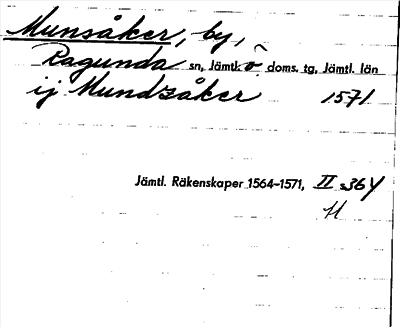 Munsåker, by,
Ragunda sn, Jämtl. ö doms. tg, Jämtl. län
ij Mundzåker 1571
Jämtl. Räkenskaper 1564–1571, II s 364